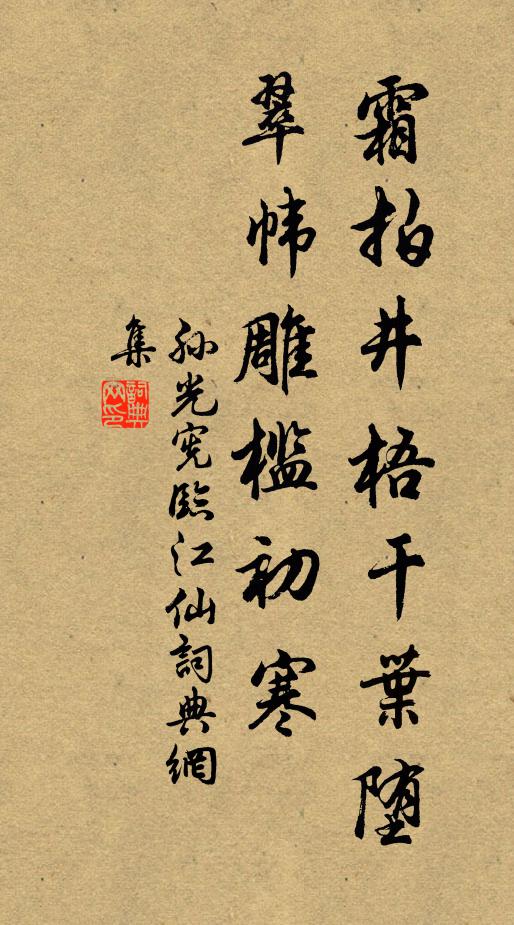 霜拍井梧干葉堕
翠帏雕檻初寒
孙光宪臨江仙詞典網
集
詞典網印